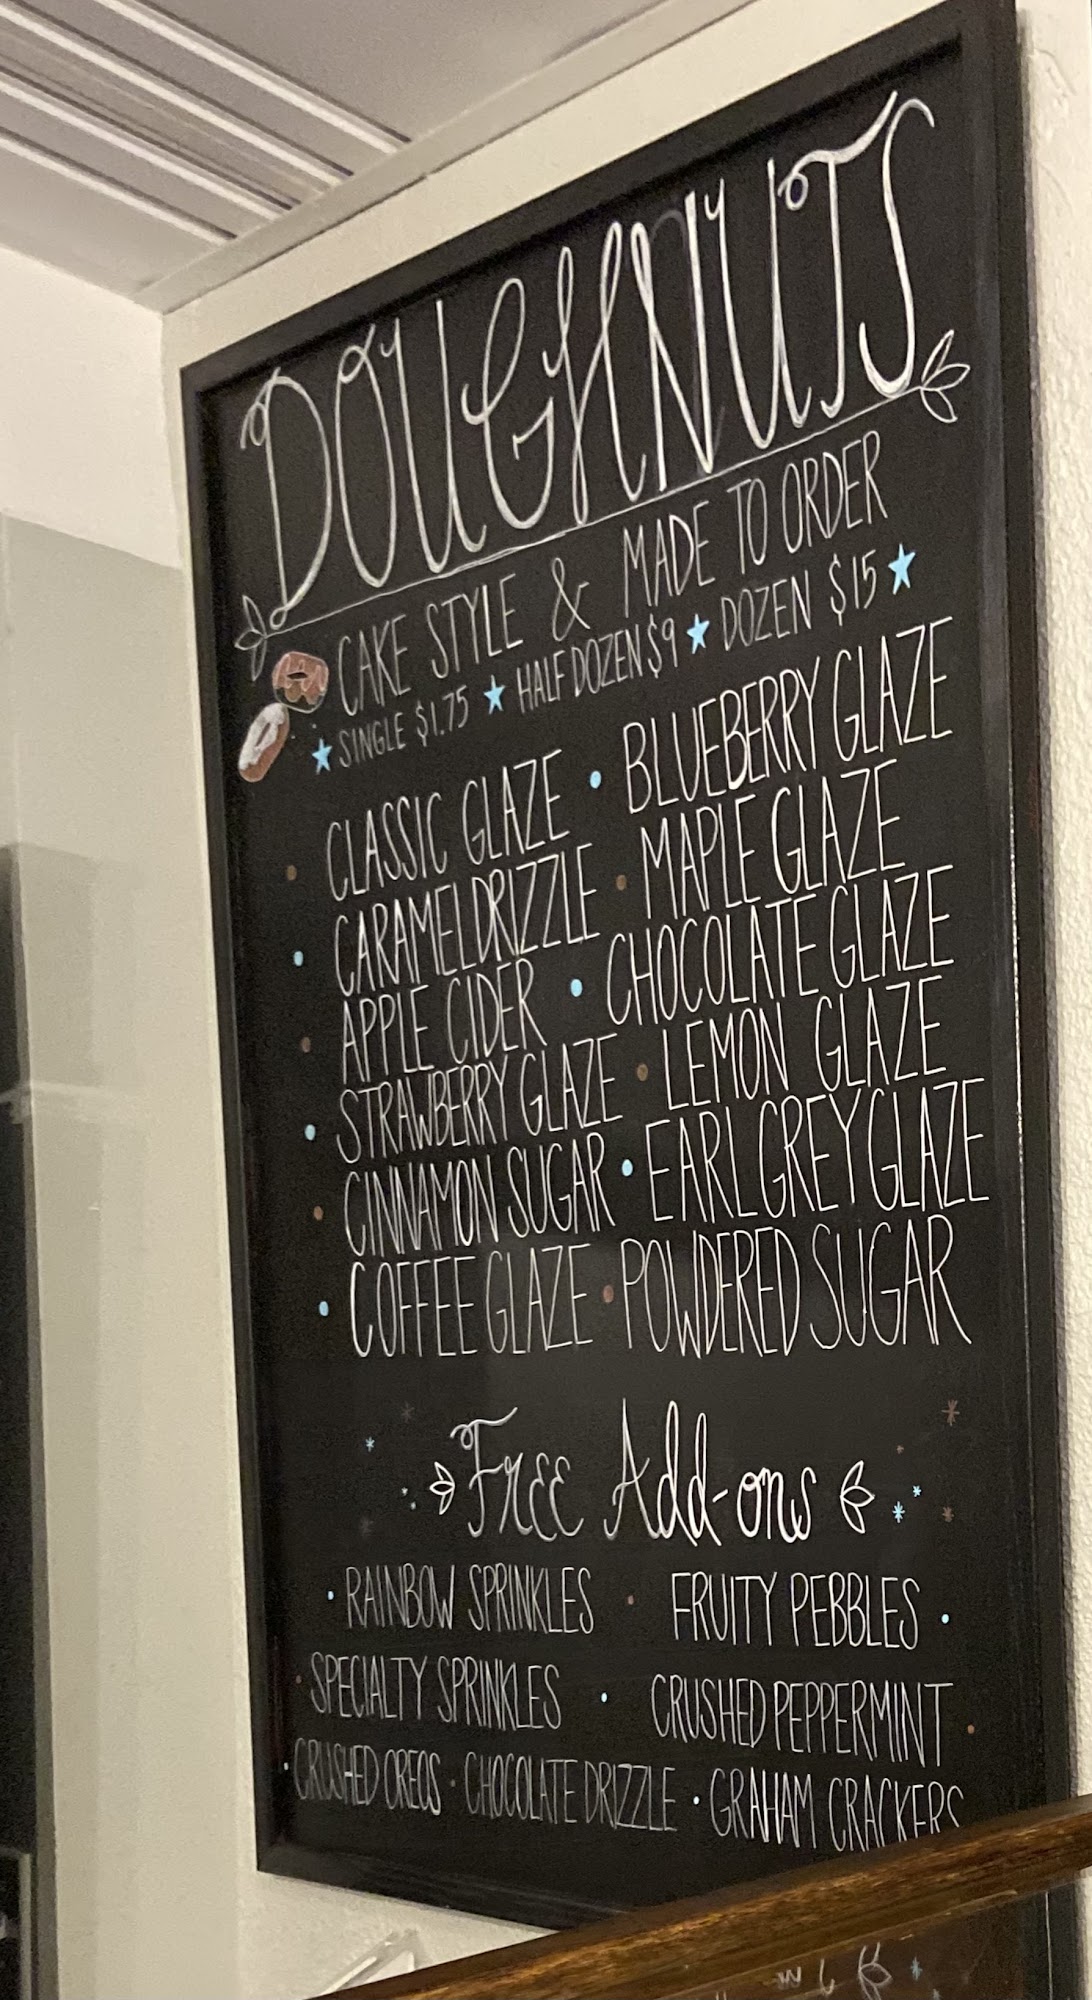 DOUGHNUTS
CAKE STYLE & MADE TO ORDER
★ SINGLE $1.75 ★ HALF DOZEN $9 ★ DOZEN $15 ★
• CLASSIC GLAZE • BLUEBERRY GLAZE
• CARAMEL DRIZZLE • MAPLE GLAZE
• APPLE CIDER • CHOCOLATE GLAZE
• STRAWBERRY GLAZE • LEMON GLAZE
• CINNAMON SUGAR • EARL GREY GLAZE
• COFFEE GLAZE • POWDERED SUGAR
Free Add-ons
• RAINBOW SPRINKLES • FRUITY PEBBLES •
• SPECIALTY SPRINKLES • CRUSHED PEPPERMINT •
• CRUSHED OREOS • CHOCOLATE DRIZZLE • GRAHAM CRACKERS